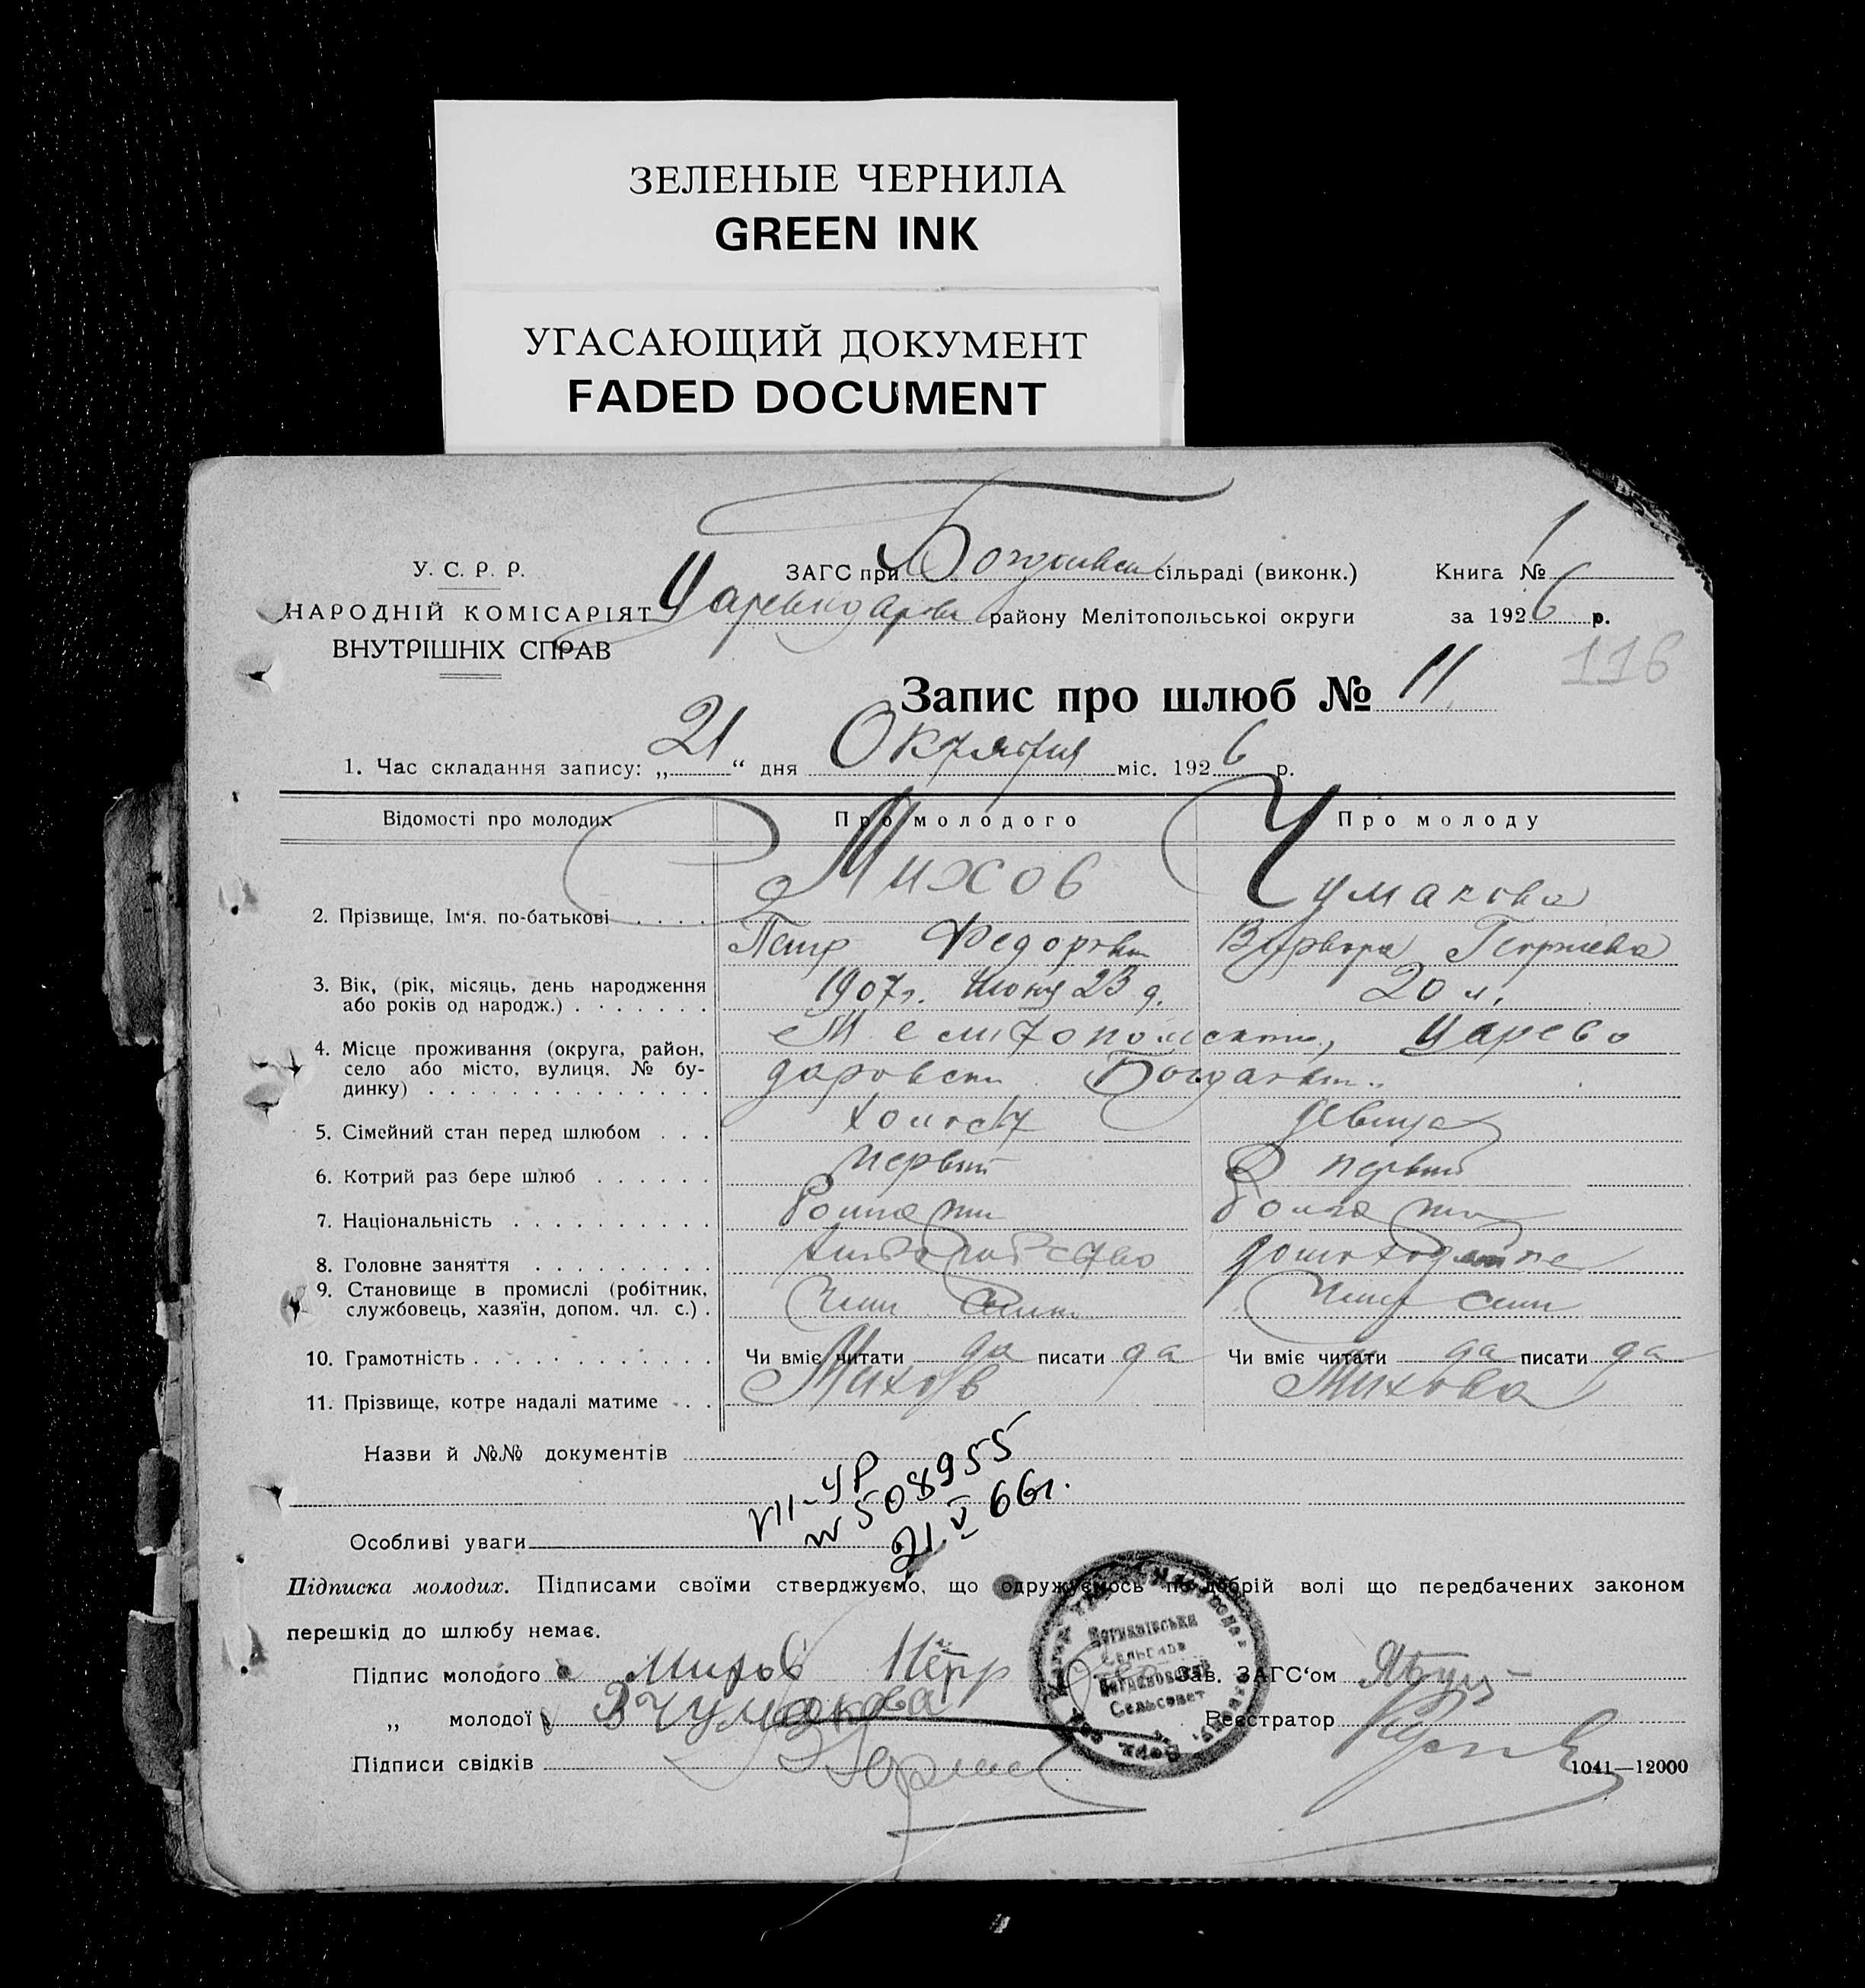 ЗЕЛЕНЫЕ ЧЕРНИЛА
GREEN INK
УГАСАЮЩИЙ ДОКУМЕНТ
FADED DOCUMENT
У. С. Р. Р.
НАРОДНІЙ КОМІСАРІЯТ
ВНУТРІШНІХ СПРАВ
ЗАГС при сільраді (виконк.)
району Мелітопольської округи
Книга № 1
за 1926 р.
116
Запис про шлюб № 11
1. Час складання запису: „21“ дня Октября міс. 1926 р.
Відомості про молодих Про молодого Про молоду
Михов Чумакова
2. Прізвище, Ім'я, по-батькові . . . .
Петр Федорович Варвара Георгиева
3. Вік, (рік, місяць, день народження 1907г. Июня 23 д. 20 л.
або років од народж.) . . . . . . .
Мелитопольский, Царево
4. Місце проживання (округа, район,
село або місто, вулиця, № бу-
динку) . . . . . . . . . . . . . .
даровский
5. Сімейний стан перед шлюбом . . . холост девица
6. Котрий раз бере шлюб . . . . . . первый первый
7. Національність . . . . . . . . . .
8. Головне заняття . . . . . . . . .
9. Становище в промислі (робітник,
службовець, хазяїн, допом. чл. с.) .
10. Грамотність . . . . . . . . . . . . Чи вміє читати да писати да Чи вміє читати да писати да
11. Прізвище, котре надалі матиме . . . Михов Михова
Назви й №№ документів
VII-УР
№ 508955
21 V 66г.
Особливі уваги
Підписка молодих. Підписами своїми стверджуємо, що одружуємось по добрій волі що передбачених законом
перешкід до шлюбу немає.
Підпис молодого Михов Петр Зав. ЗАГС'ом
„ молодої В Чумакова Реєстратор
Підписи свідків
Богданівська
Сельрада
Богдановский
Сельсовет
1041—12000